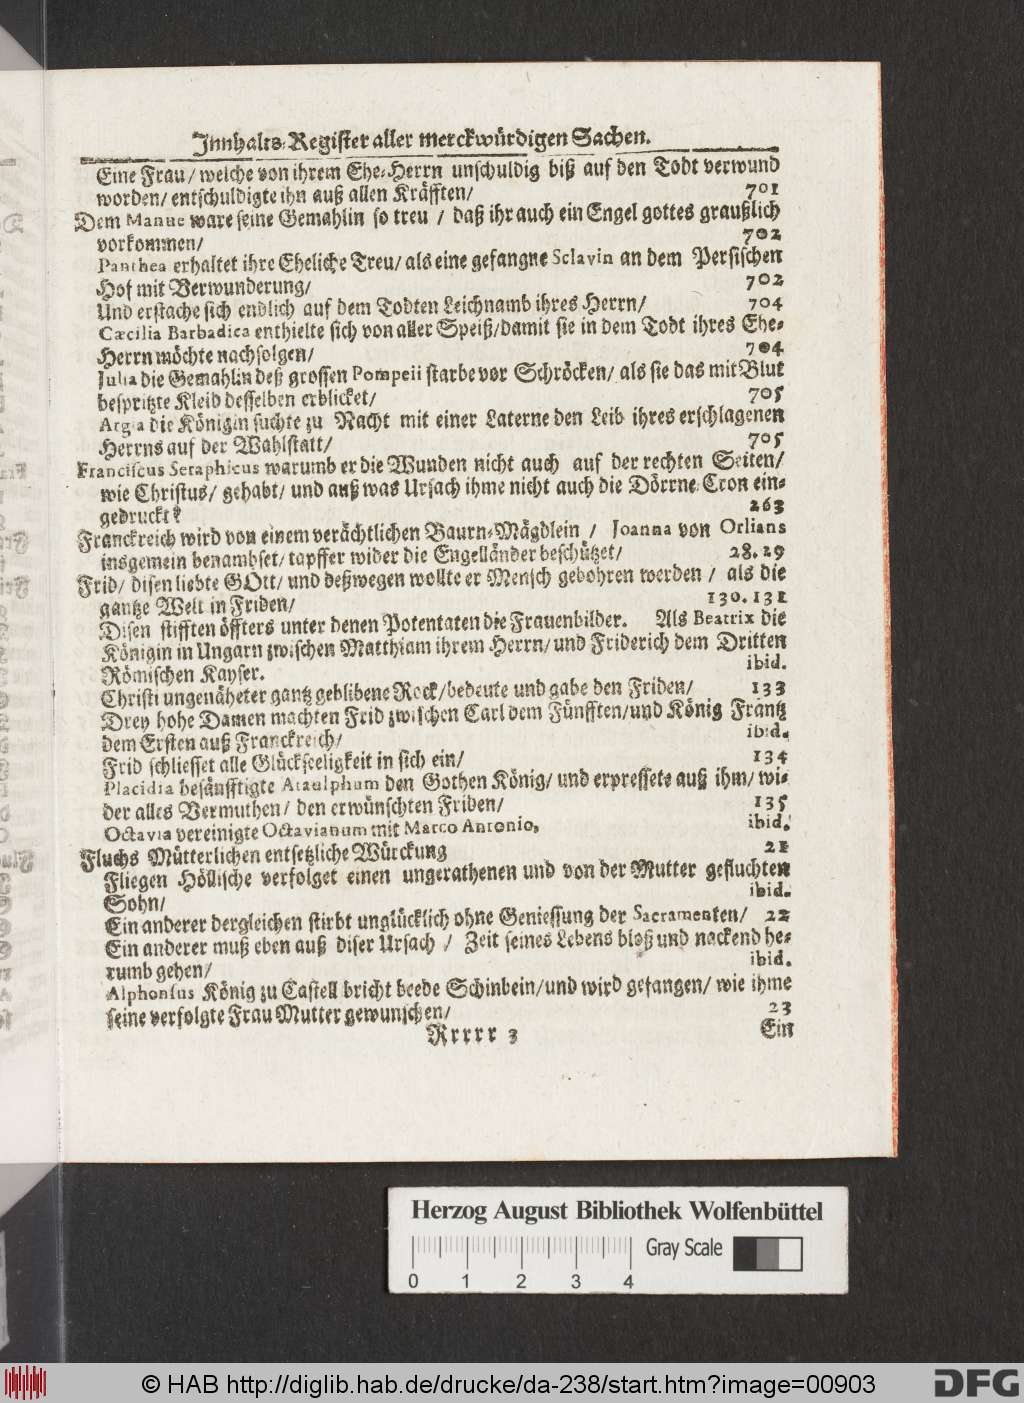 Jnnhalts-Register aller merckwürdigen Sachen.
Eine Frau/ welche von ihrem Ehe-Herrn unschuldig biß auf den Todt verwund
worden/ entschuldigte ihn auß allen Kräfften/ 701
Dem Manue ware seine Gemahlin so treu / daß ihr auch ein Engel gottes graußlich
vorkommen/ 702
Panthea erhaltet ihre Eheliche Treu/ als eine gefangne Sclavin an dem Persischen
Hof mit Verwunderung/ 702
Und erstache sich endlich auf dem Todten Leichnamb ihres Herrn/ 704
Cæcilia Barbadica enthielte sich von aller Speiß/damit sie in dem Todt ihres Ehe-
Herrn möchte nachfolgen/ 704
Julia die Gemahlin deß grossen Pompeii starbe vor Schröcken/ als sie das mit Blut
bespritzte Kleid desselben erblicket/ 705
Argia die Königin suchte zu Nacht mit einer Laterne den Leib ihres erschlagenen
Herrns auf der Wahlstatt/ 705
Franciscus Seraphicus warumb er die Wunden nicht auch auf der rechten Seiten/
wie Christus/ gehabt/ und auß was Ursach ihme nicht auch die Dörrne-Cron ein-
gedruckt? 263
Franckreich wird von einem verächtlichen Baurn-Mägdlein / Joanna von Orlians
insgemein benambset/ tapffer wider die Engelländer beschützet/ 28.29
Frid/ disen liebte GOtt/ und deßwegen wollte er Mensch gebohren werden / als die
gantze Welt in Friden/ 130.131
Disen stifften öffters unter denen Potentaten die Frauenbilder. Als Beatrix die
Königin in Ungarn zwischen Matthiam ihrem Herrn/ und Friderich dem Dritten
Römischen Kayser. ibid.
Christi ungenäheter gantz geblibene Rock/bedeute und gabe den Friden/ 133
Drey hohe Damen machten Frid zwischen Carl dem Fünfften/und König Frantz
dem Ersten auß Franckreich/ ibid.
Frid schliesset alle Glückseeligkeit in sich ein/ 134
Placidia besänfftigte Ataulphum den Gothen König/ und erpressete auß ihm/ wi-
der alles Vermuthen/ den erwünschten Friden/ 135
Octavia vereinigte Octavianum mit Marco Antonio, ibid.
Fluchs Mütterlichen entsetzliche Würckung 21
Fliegen Höllische verfolget einen ungerathenen und von der Mutter gefluchten
Sohn/ ibid.
Ein anderer dergleichen stirbt unglücklich ohne Geniessung der Sacramenten/ 22
Ein anderer muß eben auß diser Ursach / Zeit seines Lebens bloß und nackend he-
rumb gehen/ ibid.
Alphonsus König zu Castell bricht beede Schinbein/und wird gefangen/ wie ihme
seine verfolgte Frau Mutter gewunschen/ 23
Rrrrr 3 Ein
Herzog August Bibliothek Wolfenbüttel
Gray Scale
0 1 2 3 4
© HAB http://diglib.hab.de/drucke/da-238/start.htm?image=00903
DFG